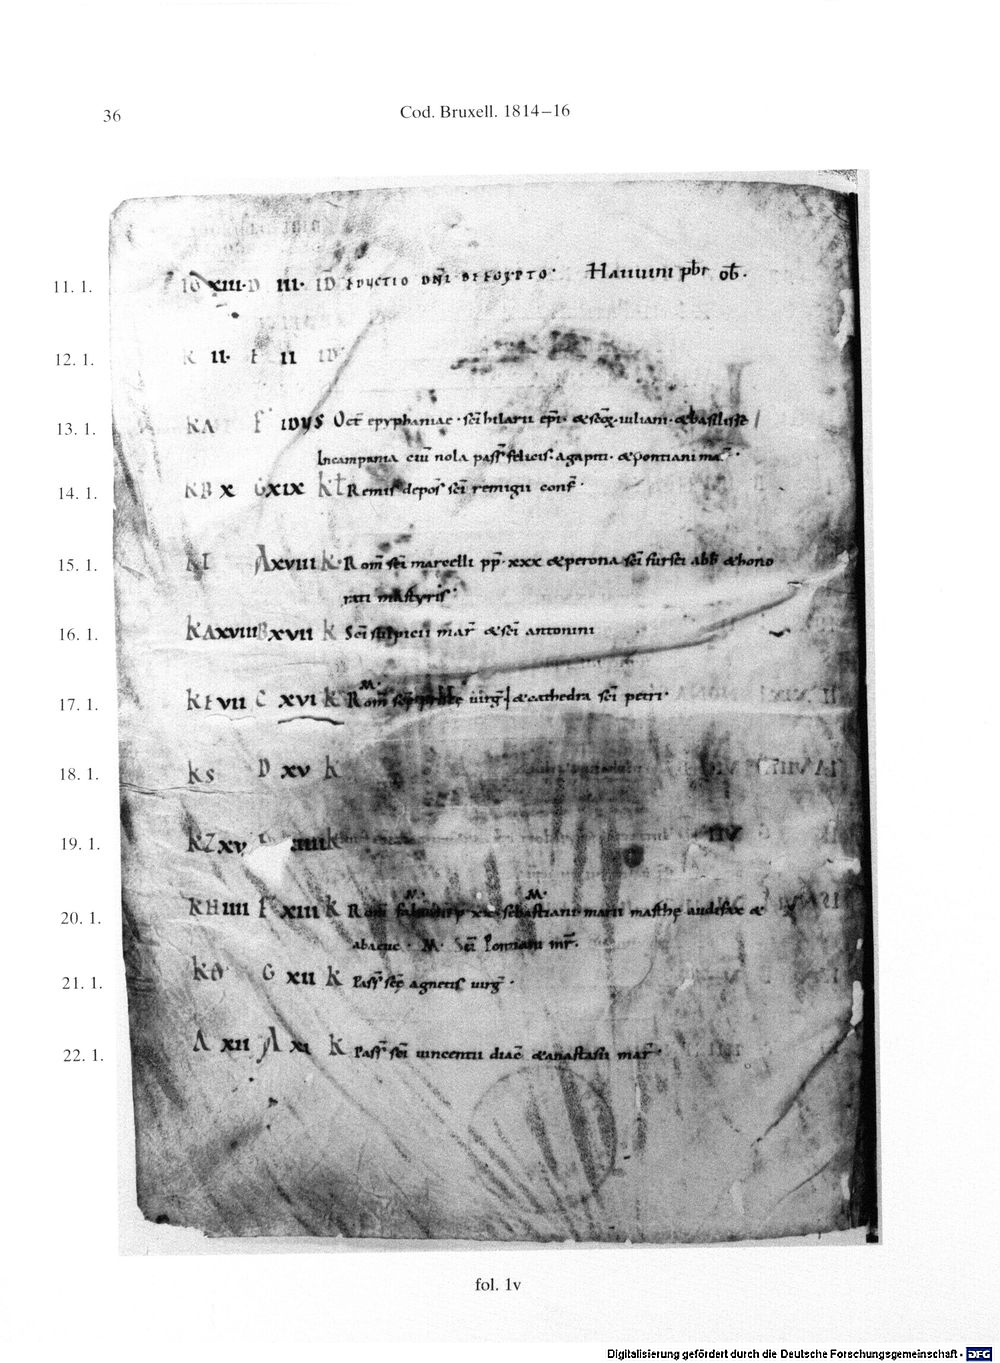 36
Cod. Bruxell. 1814–16
11. 1. XIII· D III· ID EDUCTIO DNI DE EGYPTO· Hauuini pbr ob̄·
12. 1. K II· E II ID
13. 1. KA F IDVS Oct epyphaniae· sc̄i hilarii ep̄i· & sc̄oꝝ· iuliani· & basilisse
In campania ciuī nola pass̄ felicis· agapiti· & pontiani mar̄·
14. 1. KB X G XIX Kt Remis depos̄ sc̄i remigii conf̄·
15. 1. KI A XVIII K· Rom̄ sc̄i marcelli pp̄· xxx & perona sc̄i fursei abb̄ & hono
rati martyris·
16. 1. KΛ XVIII B XVII K Sc̄i sulpicii mar̄ & sc̄i antonini
17. 1. KE VII C XVI K Rom̄ sc̄e priscę uirḡ & cathedra sc̄i petri·
M·
18. 1. KS D XV K
19. 1. KZ XV K
20. 1. KH IIII F XIII K Rom̄ fabiani p̄p xx· sebastiani· marii marthę audifax &
M· M·
abacuc· M· Sc̄i Pontiani mr̄·
21. 1. KΘ G XII K Pass̄ sc̄ę agnetis uirḡ·
22. 1. Λ XII A XI K Pass̄ sc̄i uincentii diac̄ & anastasii mar̄·
fol. 1v
Digitalisierung gefördert durch die Deutsche Forschungsgemeinschaft - DFG